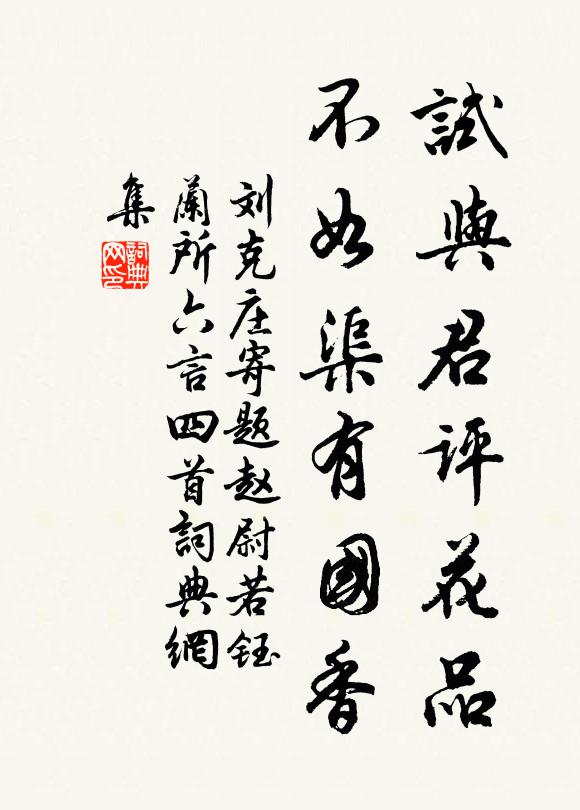 試與君评花品
不如渠有國香
刘克庄寄题赵尉若鈺
蘭所六言四首詞典網
集
詞典
网印